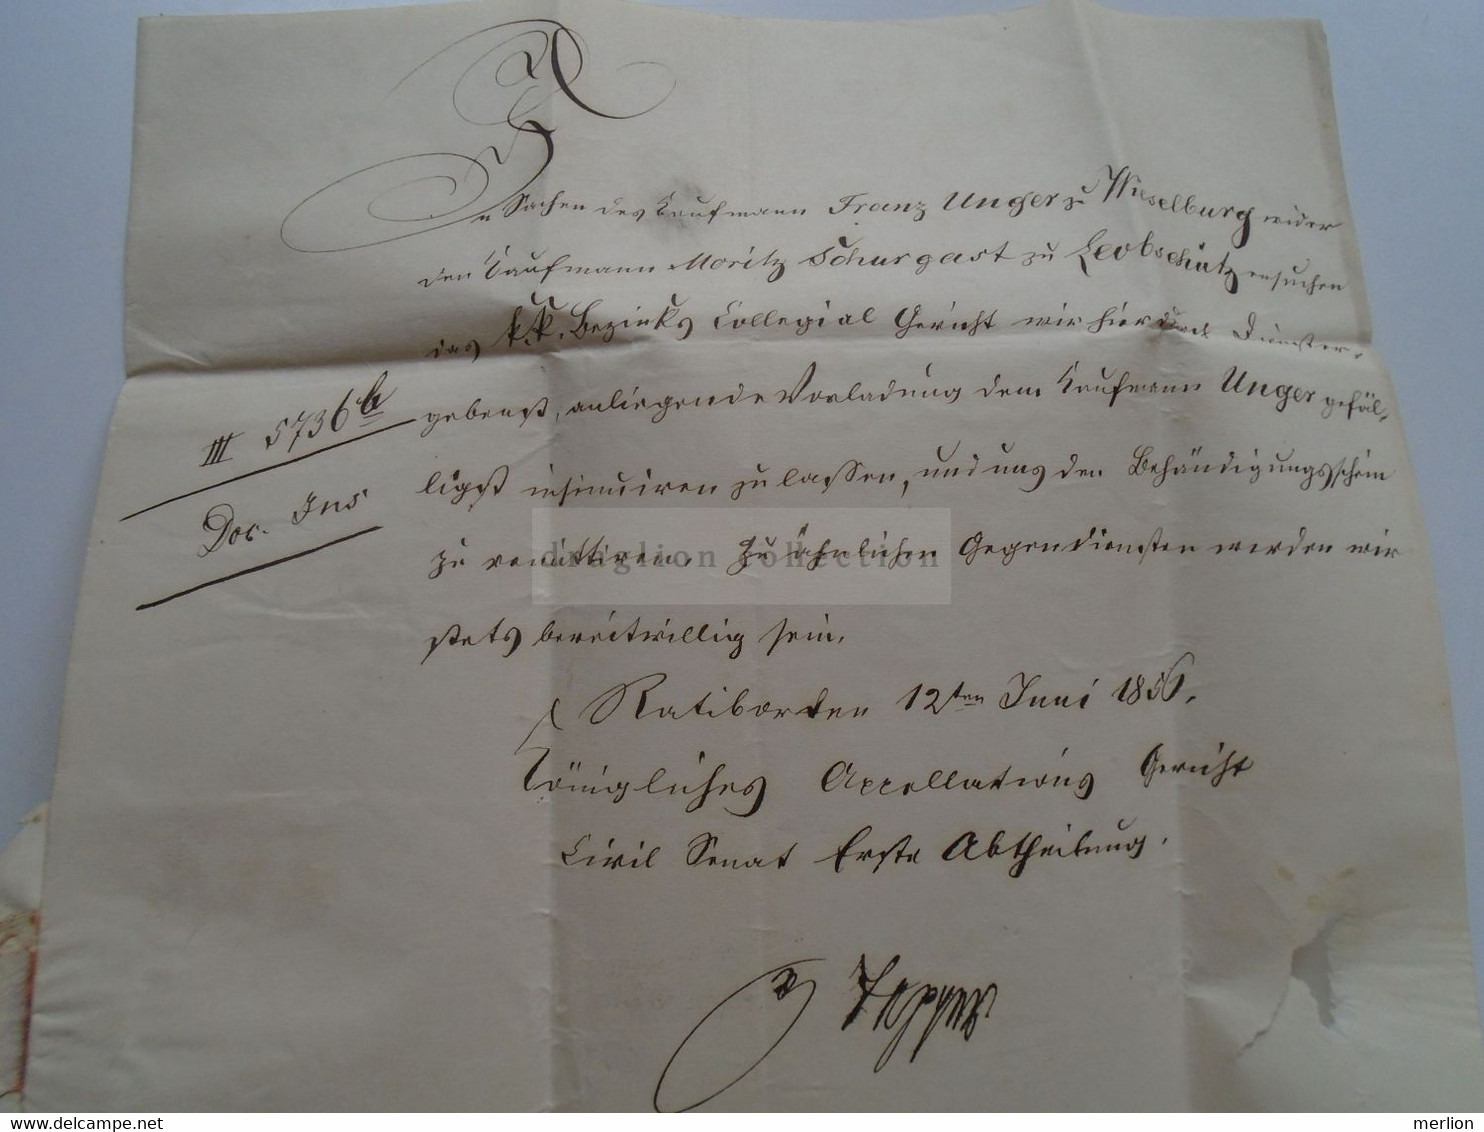 In Sachen des Kaufmann Franz Unger zu Wieselburg wider
den Kaufmann Moritz Schurgast zu Leobschütz ersuchen
das k. k. Bezirks Collegial Gericht wir hierdurch dienster-
gebenst, anliegende Vorladung dem Kaufmann Unger gefäl-
ligst insinuiren zu lassen, und uns den Behändigungsschein
zu remittiren. Zu ähnlichen Gegendiensten werden wir
stets bereitwillig sein.
III 5736 b
Doc. Ins
Ratibor den 12ten Juni 1856.
Königliches Appellations Gericht
Civil Senat Erste Abtheilung.
draglion collection
merlion